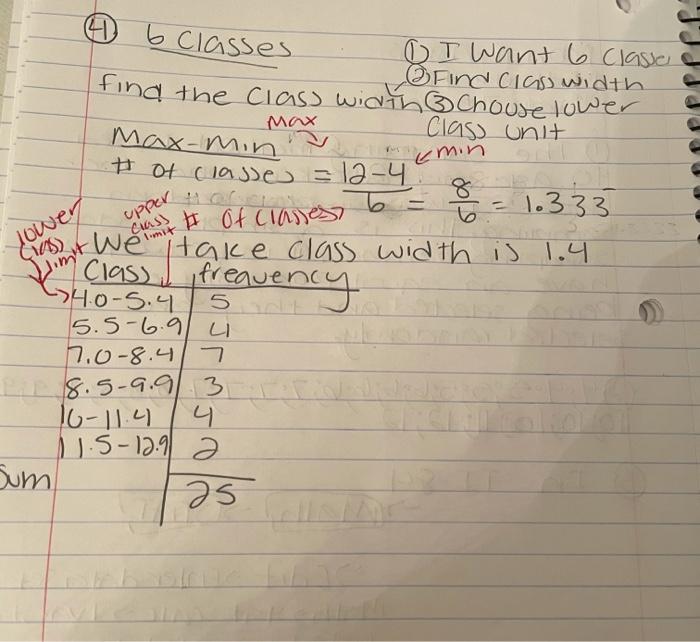 ④ 6 Classes
① I want 6 classe
② Find class width
find the class width ③ Choose lower
class unit
Max
Max-min
# of classes = 12-4 / 6 = 8/6 = 1.333
min
lower class limit
upper class limit
# of classes
We take class width is 1.4
Class frequency
4.0-5.4 5
5.5-6.9 4
7.0-8.4 7
8.5-9.9 3
10-11.4 4
11.5-12.9 2
Sum 25